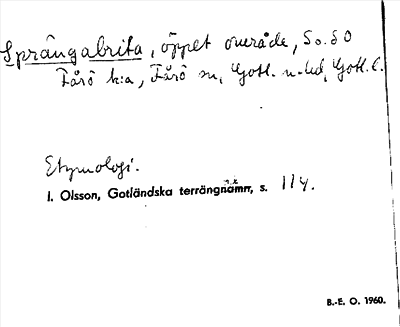 Språngabrita, öppet område, S o. SO
Fårö k:a, Fårö sn, Gotl. n. hd, Gotl. l.
Etymologi.
I. Olsson, Gotländska terrängnamn, s. 114.
B.-E. O. 1960.